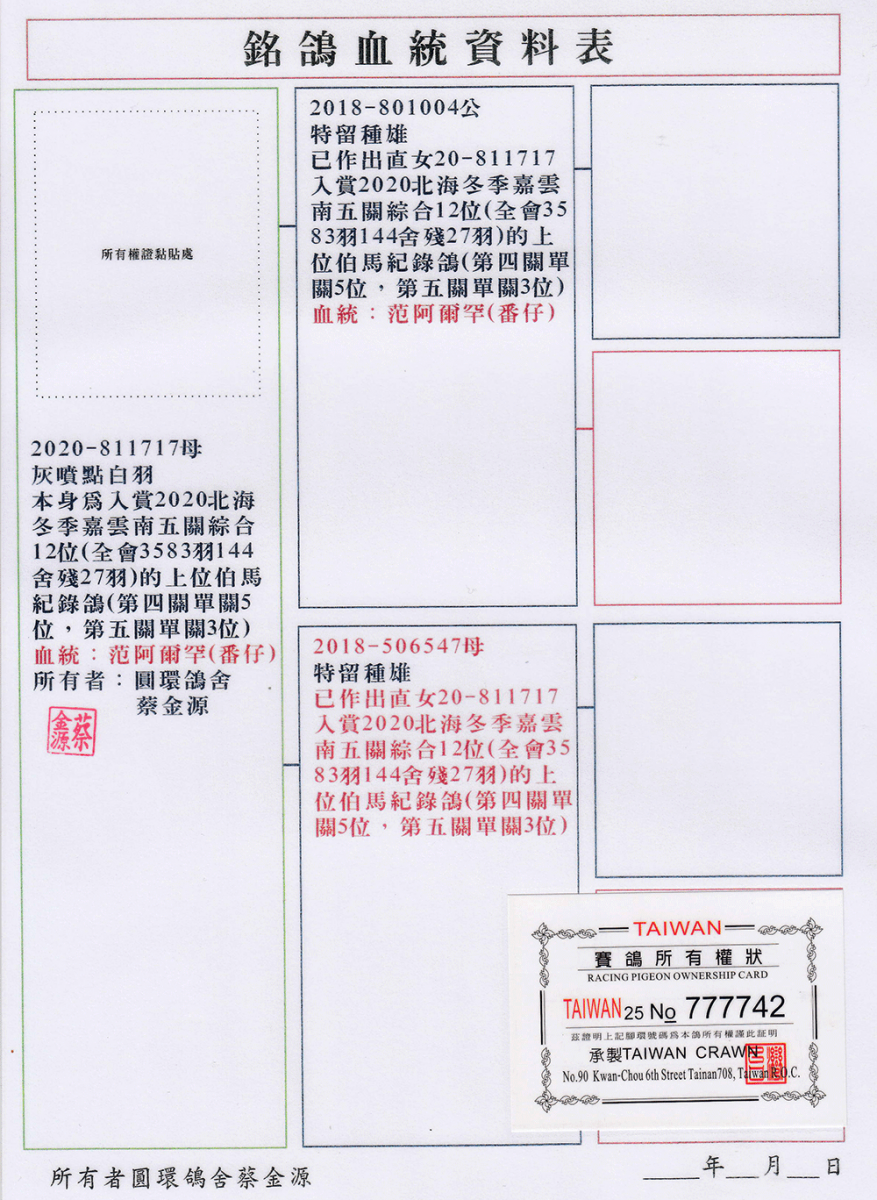 銘鴿血統資料表
所有權證黏貼處
2020-811717母
灰噴點白羽
本身為入賞2020北海
冬季嘉雲南五關綜合
12位(全會3583羽144
舍殘27羽)的上位伯馬
紀錄鴿(第四關單關5
位，第五關單關3位)
血統：范阿爾罕(番仔)
所有者：圓環鴿舍
蔡金源
蔡金源
2018-801004公
特留種雄
已作出直女20-811717
入賞2020北海冬季嘉雲
南五關綜合12位(全會35
83羽144舍殘27羽)的上
位伯馬紀錄鴿(第四關單
關5位，第五關單關3位)
血統：范阿爾罕(番仔)
2018-506547母
特留種雄
已作出直女20-811717
入賞2020北海冬季嘉雲
南五關綜合12位(全會35
83羽144舍殘27羽)的上
位伯馬紀錄鴿(第四關單
關5位，第五關單關3位)
TAIWAN
賽鴿所有權狀
RACING PIGEON OWNERSHIP CARD
TAIWAN 25 No 777742
茲證明上記腳環號碼為本鴿所有權謹此証明
承製TAIWAN CRAWN
No.90 Kwan-Chou 6th Street Tainan708, Taiwan R.O.C.
所有者圓環鴿舍蔡金源
____年___月___日